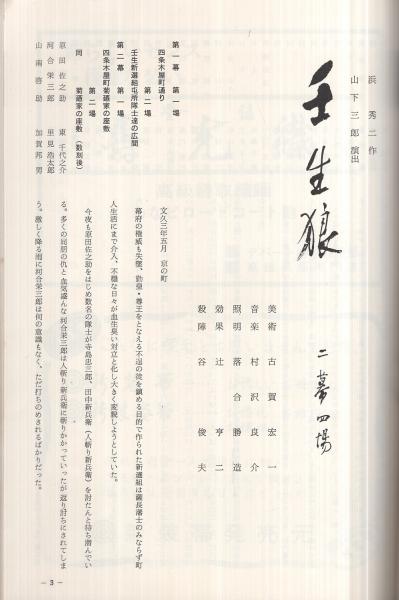 浜秀二作
山下三郎演出
壬生狼
二幕四場
美術 古賀宏一
音楽 村沢良介
照明 落合勝造
効果 辻亨二
殺陣 谷俊夫
第一幕 第一場
四条木屋町通り
第二場
壬生新選組屯所隊士達の広間
第二幕 第一場
四条木屋町菊廼家の座敷
第二場
同 菊廼家の座敷(数刻後)
原田佐之助 東千代之介
河合栄三郎 里見浩太郎
山南啓助 加賀邦男
文久三年五月 京の町
幕府の権威も失墜、勤皇・尊王をとなえる不逞の徒を鎮める目的で作られた新選組は薩長藩士のみならず町
人生活にまで介入、不穏な日々が血生臭い対立と化し大きく変貌しようとしていた。
今夜も原田佐之助をはじめ数名の隊士が寺島忠三郎、田中新兵衛(人斬り新兵衛)を討たんと待ち潜んでい
る。多くの同朋の仇と血気盛んな河合栄三郎は人斬り新兵衛に斬りかかっていったが返り討ちにされてしま
う。激しく降る雨に河合栄三郎は何の意識もなく、ただ打ちのめされるばかりだった。
— 3 —